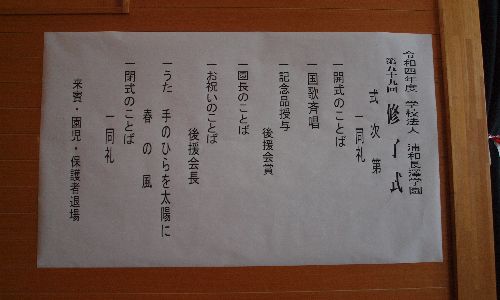 令和四年度　学校法人　浦和長澤学園
第五十九回　修了式
式次第
一同礼
一開式のことば
一国歌斉唱
一記念品授与
後援会賞
一園長のことば
一お祝いのことば
後援会長
一うた　手のひらを太陽に
春の風
一閉式のことば
一同礼
来賓・園児・保護者退場